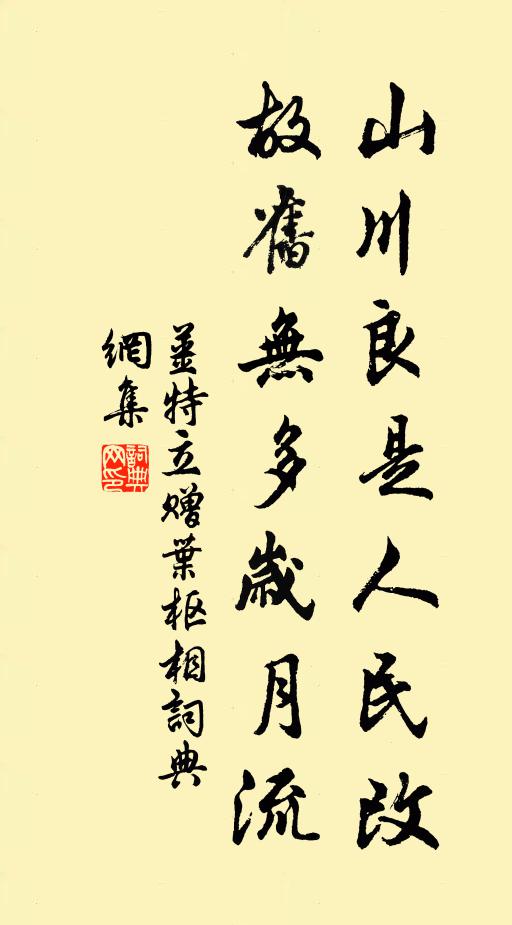 山川良是人民改
故舊無多歲月流
姜特立赠葉枢相詞典
網集
詞典網印